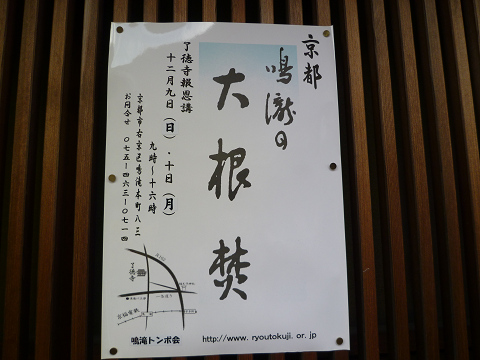 京都
鳴瀧の
大根焚
了徳寺報恩講
十二月九日(日)・十日(月)
九時〜十六時
京都市右京区鳴滝本町八三
お問合せ 〇七五―四六三―〇七一四
了徳寺
鳴滝トンボ会
http://www.ryoutokuji.or.jp